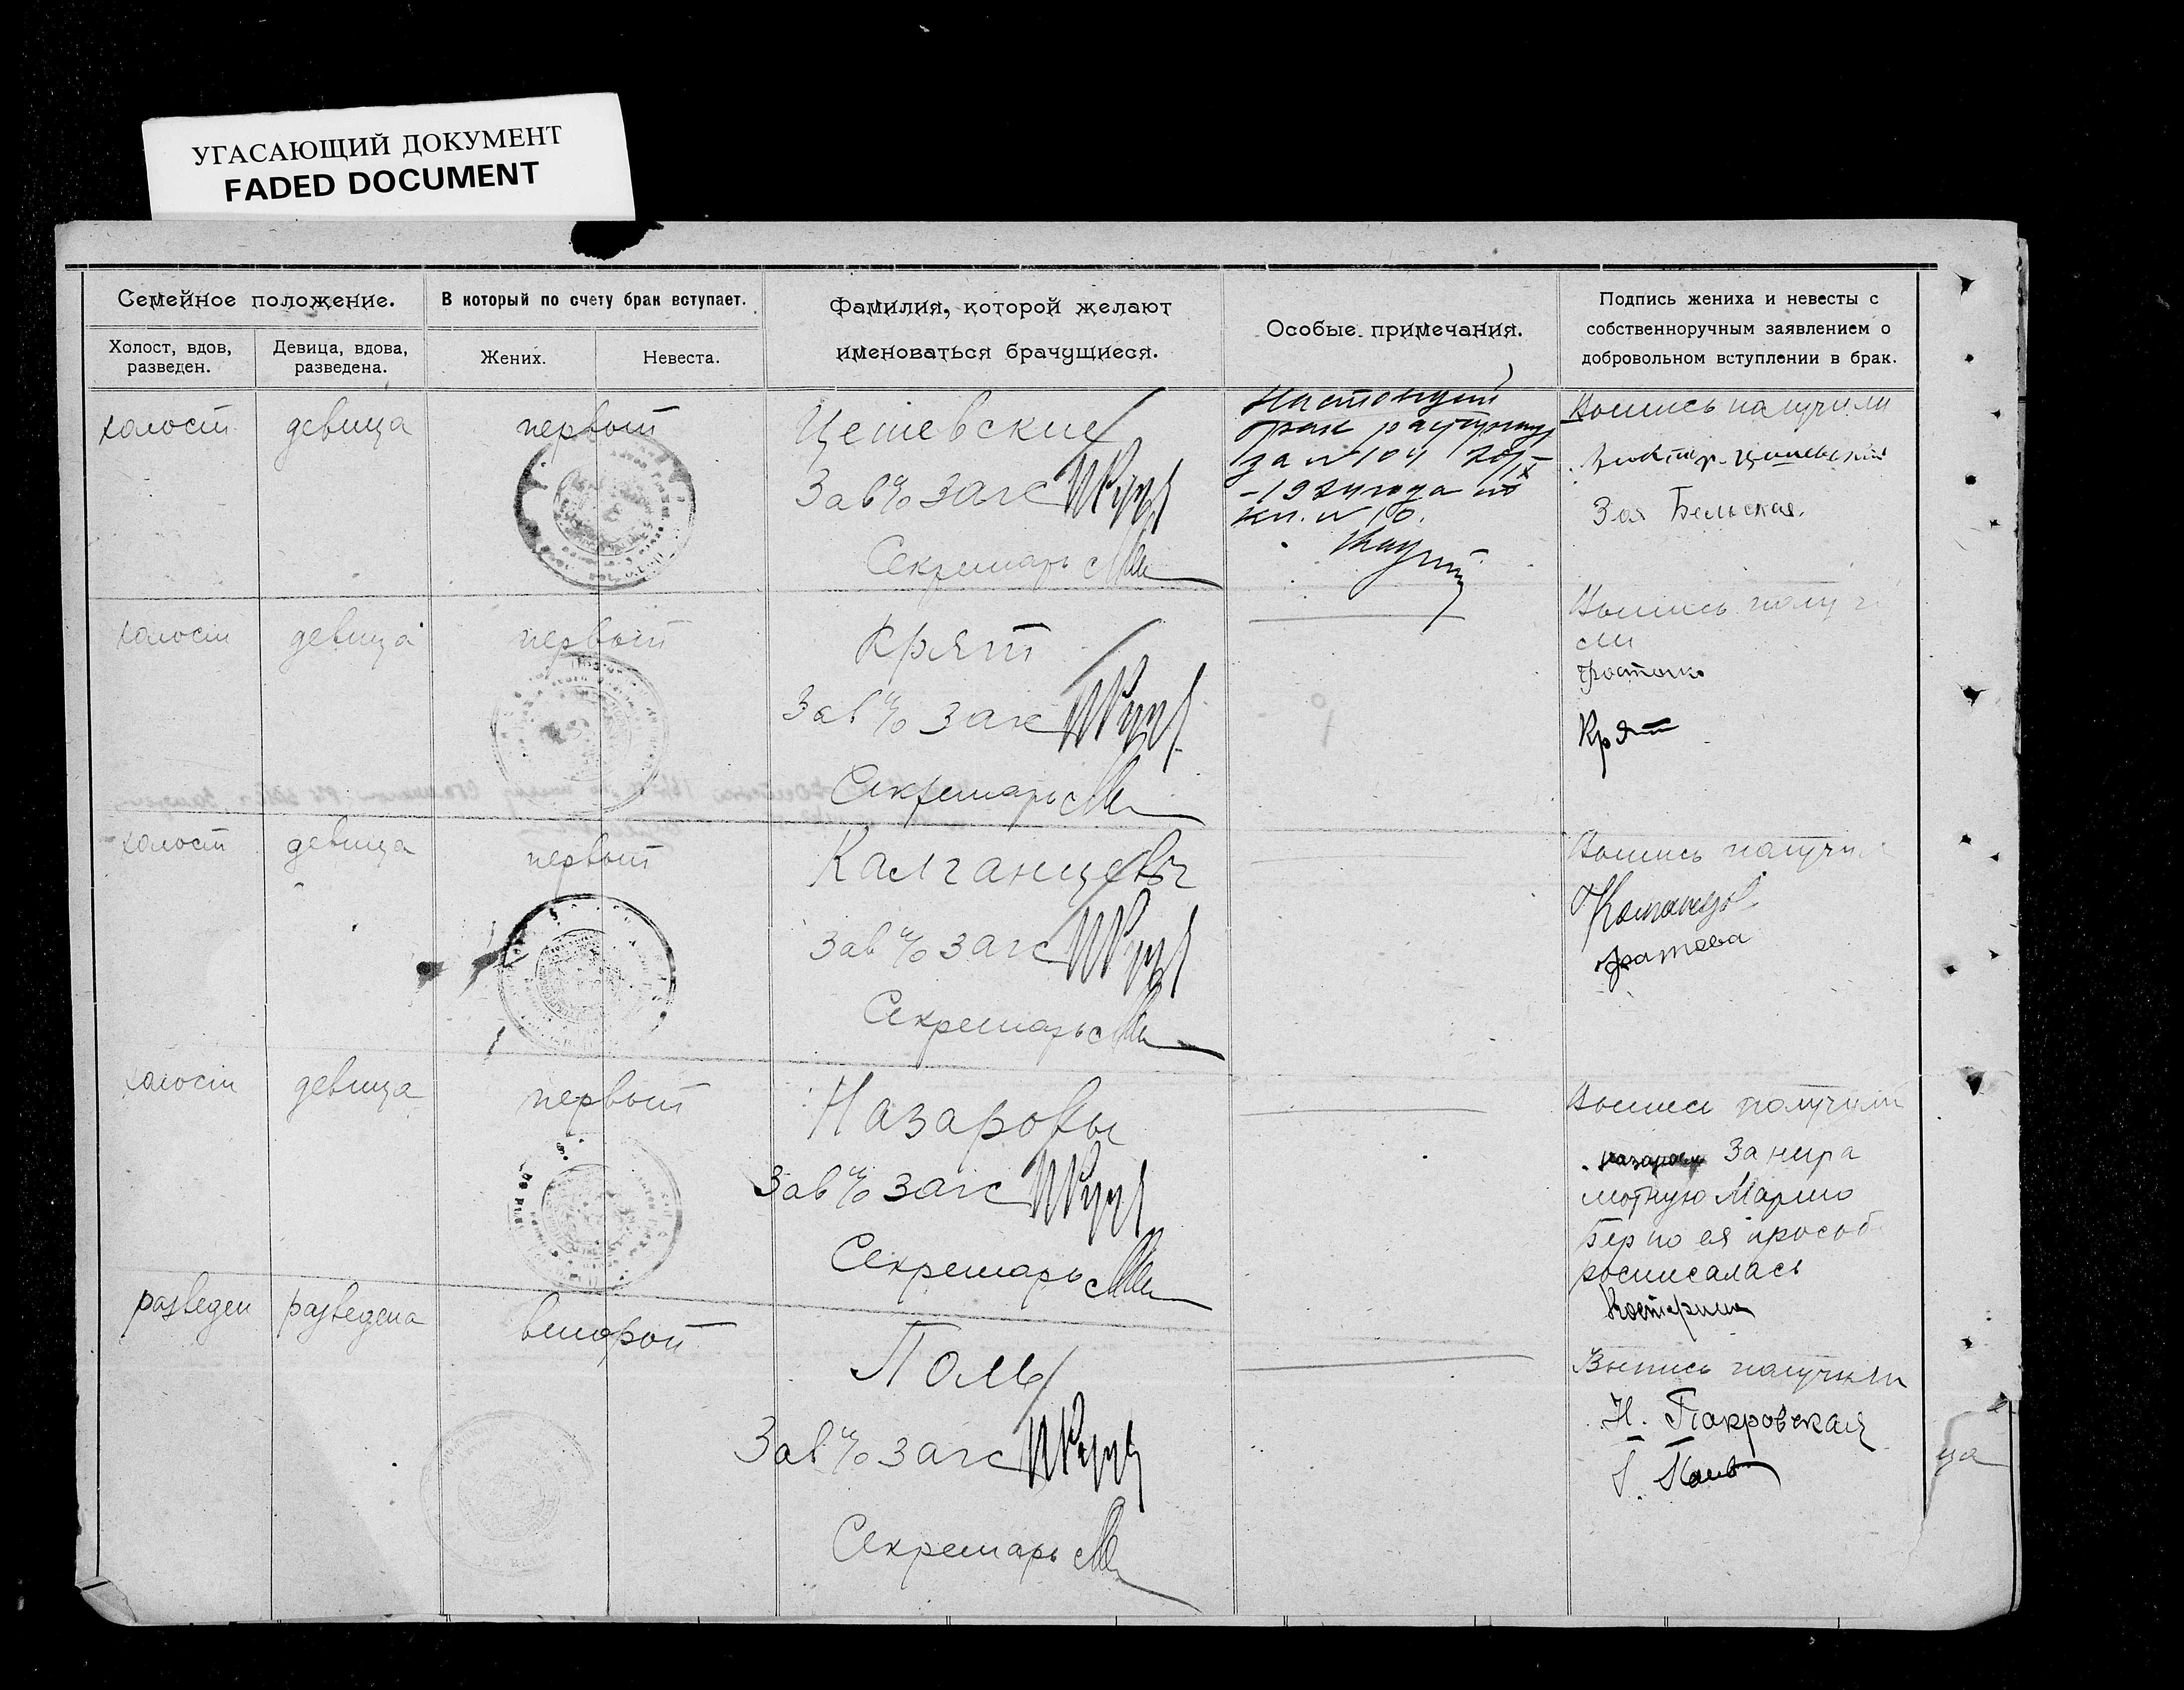 УГАСАЮЩИЙ ДОКУМЕНТ
FADED DOCUMENT
Семейное положение.
В который по счету брак вступает.
Фамилия, которой желают
именоваться брачущиеся.
Особые примечания.
Подпись жениха и невесты с
собственноручным заявлением о
добровольном вступлении в брак.
Холост, вдов,
разведен.
Девица, вдова,
разведена.
Жених.
Невеста.
холост
девица
первый
Цешевские
Зав п/о загс
Секретарь
Настоящий
брак
за №104
кн. № 10.
Выпись получили
Зоя Бельская.
холост
девица
первый
Крят
Зав п/о загс
Секретарь
Выпись получи
Крят
холост
девица
первый
Калганцевы
Зав п/о загс
Секретарь
Выпись получи
холост
девица
первый
Назаровы
Зав п/о загс
Секретарь
Выпись получили
За негра
мотную Марию
Бер по ея прособ
росписалась
разведен
разведена
второй
Поль
Зав п/о загс
Секретарь
Выпись получили
Н. Покровская
ца